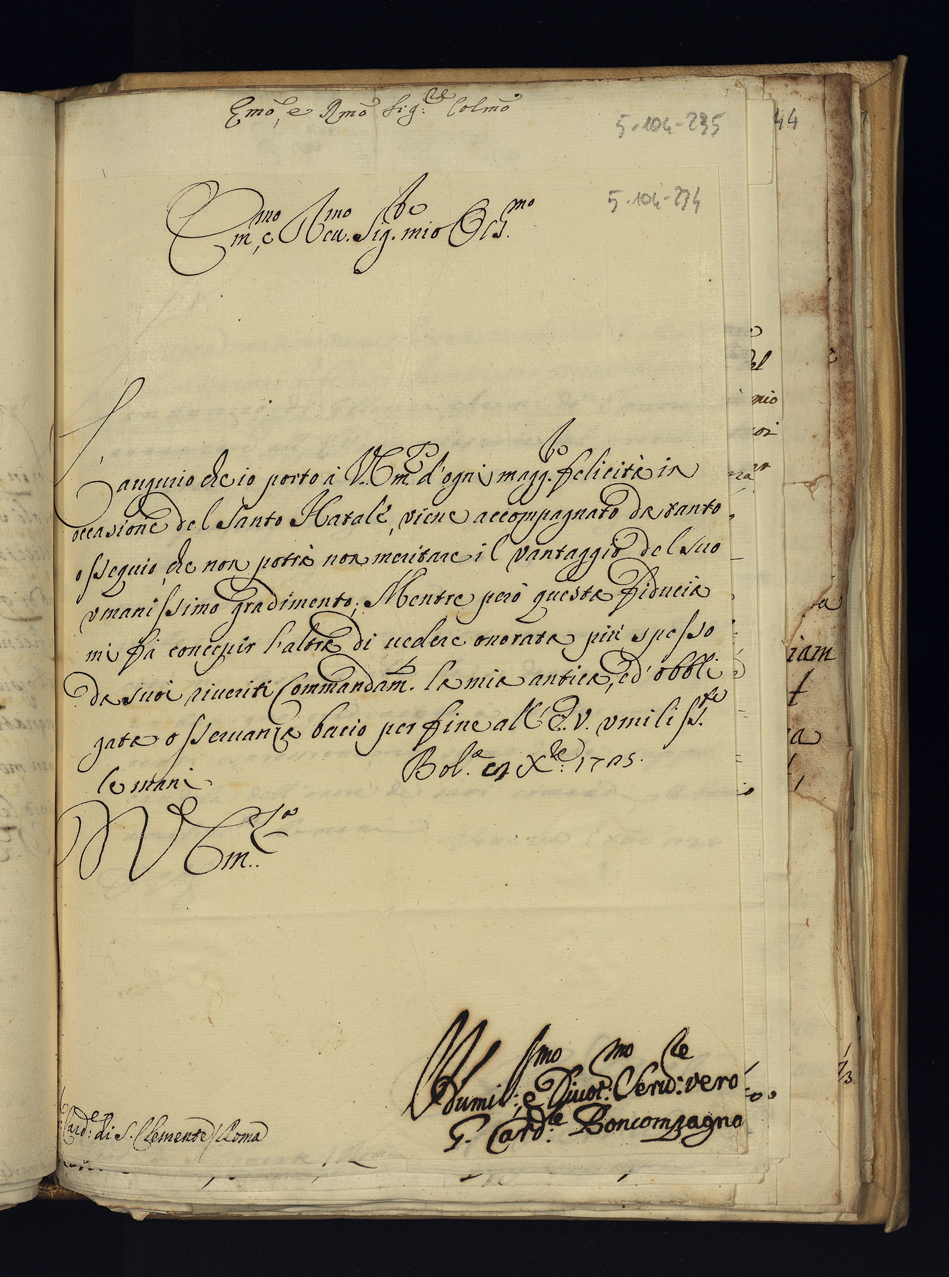 Emo, e Rmo Sig:re Colmo
5-104-235
44
5-104-234
Em.mo, e Reu.mo Sig.re mio Oss.mo
L'augurio che io porto à V. Em.za d'ogni magg.re felicità in
occasione del Santo Natale, viene accompagnato da tanto
ossequio, che non potrà non meritare il vantaggio del suo
vmanissimo gradimento; Mentre però questa fiducia
mi fà conseguir l'altra di uedere onorata più spesso
da suoi riueriti Commandam.ti la mia antica, ed' obbli
gata osseruanza bacio per fine all' E. V. vmiliss.te
le mani
Bol.a Xbre: 1725.
V. Em.za
Humil:mo, e Diuot:mo Seru:re vero
G. Card.le Boncompagno
Card.e di S. Clemente / Roma